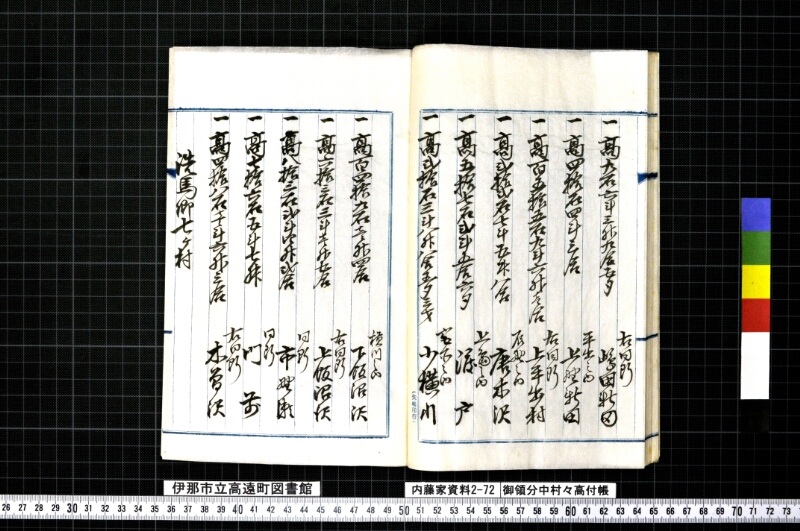 一高六石六斗三升九合七夕
右同断
嶋田新田
一高四拾石四斗三合
平出之内
上野新田
一高百五拾五石九斗六升三合
右同断
上平出村
一高弐拾石七斗五升八合
辰野之内
唐木沢
一高五拾七石弐斗五合六夕
上嶋之内
源戸
一高弐拾石三斗八升八合五夕三才
小横川
一高百四拾九石三升四合
横川之内
下飯沼沢
一高六拾三石三斗三升七合
右同断
上飯沼沢
一高八拾三石弐斗三升弐合
同断
市野瀬
一高七拾六石五斗七升
同断
門前
一高四拾八石七斗六升三合
右同断
木曽沢
洗馬郷七ヶ村
伊那市立高遠町図書館
内藤家資料2-72
御領分中村々高付帳